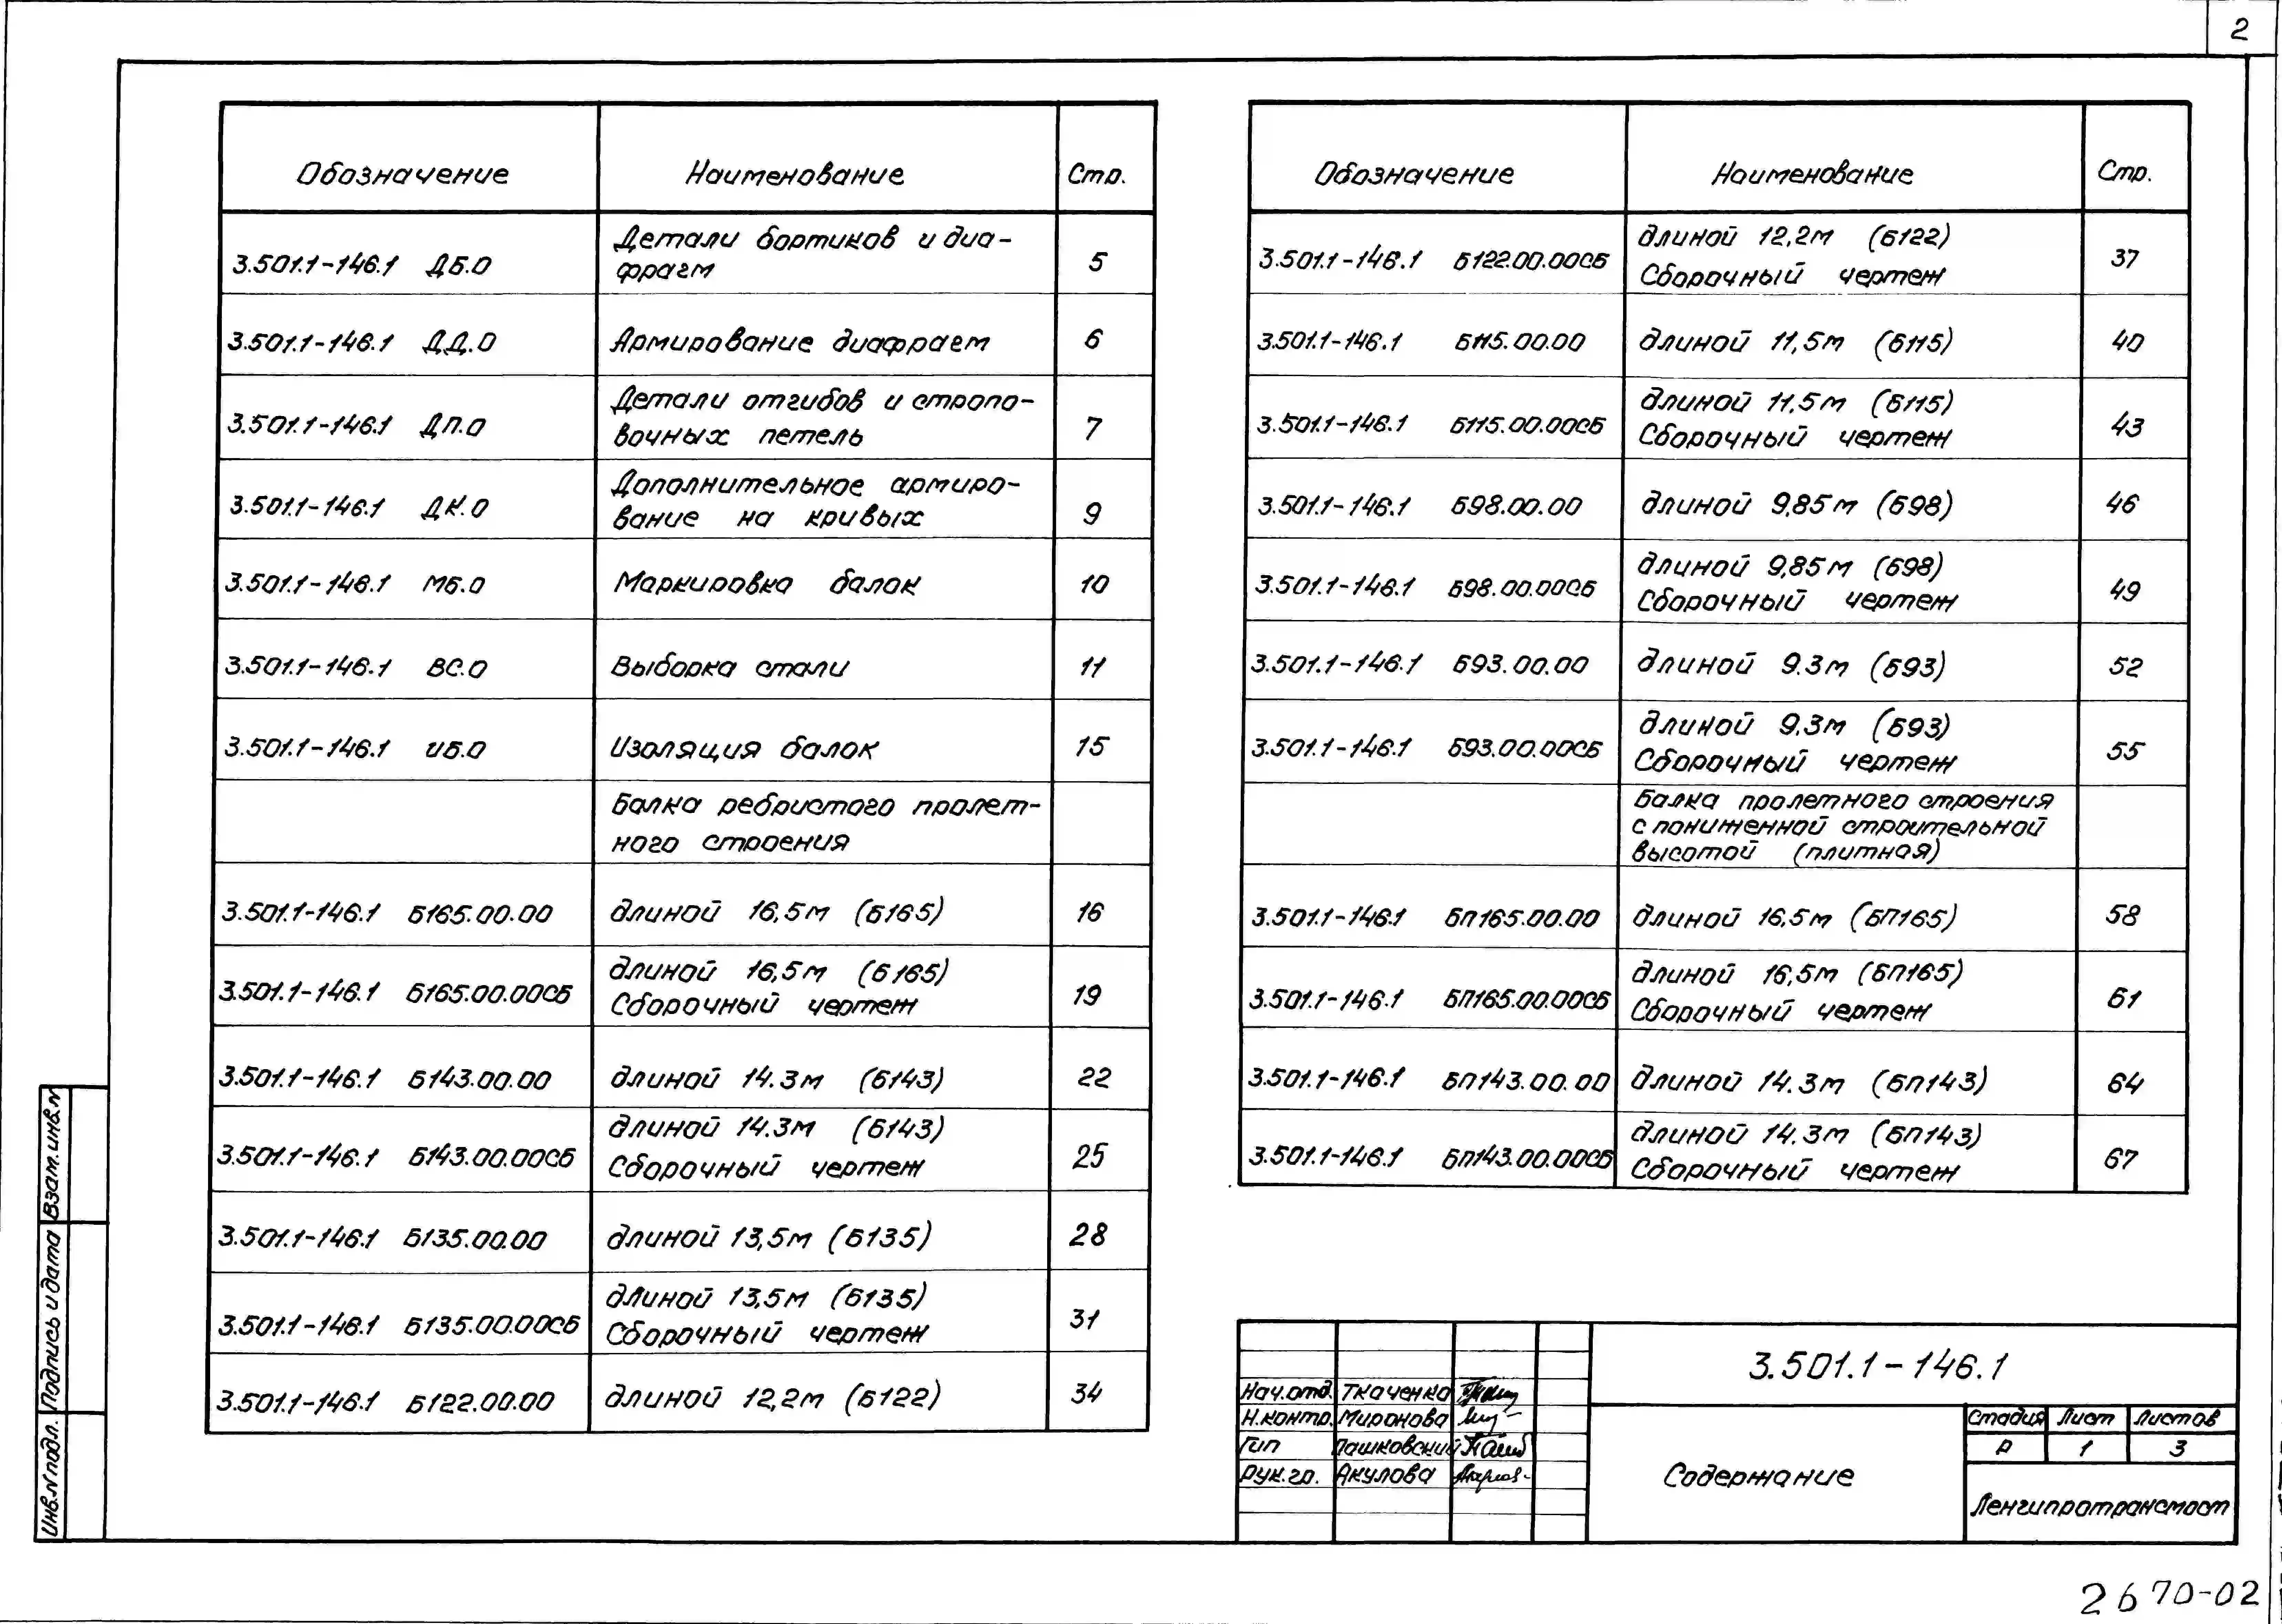 2
Обозначение Наименование Стр.
3.501.1-146.1 ДБ.0 Детали бортиков и диа-
фрагм 5
3.501.1-146.1 ДД.0 Армирование диафрагм 6
3.501.1-146.1 ДП.0 Детали отгибов и стропо-
вочных петель 7
3.501.1-146.1 ДК.0 Дополнительное армиро-
вание на кривых 9
3.501.1-146.1 МБ.0 Маркировка балок 10
3.501.1-146.1 ВС.0 Выборка стали 11
3.501.1-146.1 ИБ.0 Изоляция балок 15
Балка ребристого пролет-
ного строения
3.501.1-146.1 Б165.00.00 длиной 16,5м (Б165) 16
3.501.1-146.1 Б165.00.00СБ длиной 16,5м (Б165)
Сборочный чертеж 19
3.501.1-146.1 Б143.00.00 длиной 14.3м (Б143) 22
3.501.1-146.1 Б143.00.00СБ длиной 14.3м (Б143)
Сборочный чертеж 25
3.501.1-146.1 Б135.00.00 длиной 13,5м (Б135) 28
3.501.1-146.1 Б135.00.00СБ длиной 13,5м (Б135)
Сборочный чертеж 31
3.501.1-146.1 Б122.00.00 длиной 12,2м (Б122) 34
Обозначение Наименование Стр.
3.501.1-146.1 Б122.00.00СБ длиной 12,2м (Б122)
Сборочный чертеж 37
3.501.1-146.1 Б115.00.00 длиной 11,5м (Б115) 40
3.501.1-146.1 Б115.00.00СБ длиной 11.5м (Б115)
Сборочный чертеж 43
3.501.1-146.1 Б98.00.00 длиной 9,85м (Б98) 46
3.501.1-146.1 Б98.00.00СБ длиной 9,85м (Б98)
Сборочный чертеж 49
3.501.1-146.1 Б93.00.00 длиной 9.3м (Б93) 52
3.501.1-146.1 Б93.00.00СБ длиной 9.3м (Б93)
Сборочный чертеж 55
Балка пролетного строения
с пониженной строительной
высотой (плитная)
3.501.1-146.1 БП165.00.00 длиной 16,5м (БП165) 58
3.501.1-146.1 БП165.00.00СБ длиной 16,5м (БП165)
Сборочный чертеж 61
3.501.1-146.1 БП143.00.00 длиной 14.3м (БП143) 64
3.501.1-146.1 БП143.00.00СБ длиной 14.3м (БП143)
Сборочный чертеж 67
Взам.инв.N
Подпись и дата
Инв.N подл.
3.501.1-146.1
Нач.отд. Ткаченко
Н.контр. Миронова
Гип Пашковский
Рук.гр. Акулова
Содержание
Стадия Лист Листов
Р 1 3
Ленгипротрансмост
2670-02